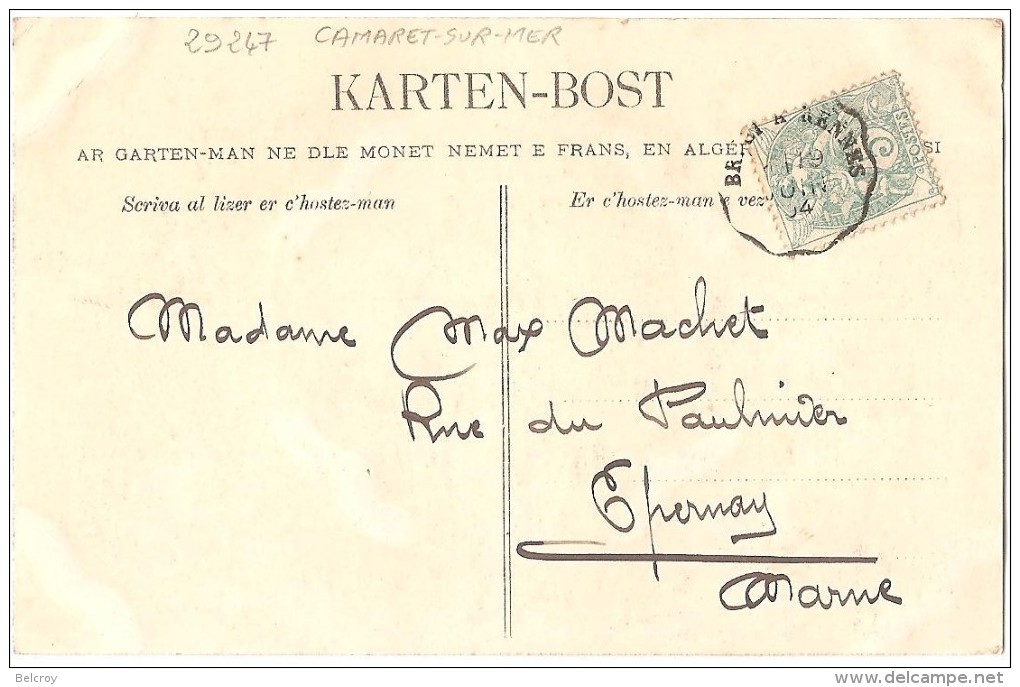 29247 CAMARET-SUR-MER
KARTEN-BOST
AR GARTEN-MAN NE DLE MONET NEMET E FRANS, EN ALGÉR SI
Scriva al lizer er c'hostez-man
Er c'hostez-man e vez
RENNES
POSTES
19
04
Madame Max Machet
Rue du Paulmier
Epernay
Marne
Belcroy
delcampe.net